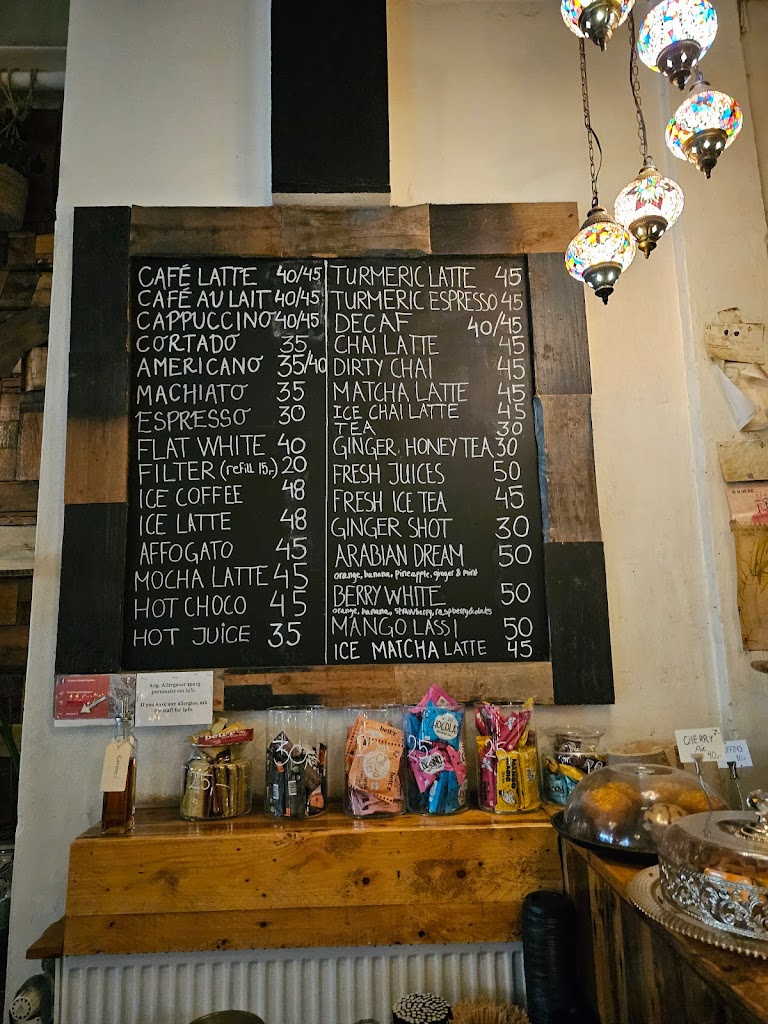 CAFÉ LATTE 40/45
CAFÉ AU LAIT 40/45
CAPPUCCINO 40/45
CORTADO 35
AMERICANO 35/40
MACHIATO 35
ESPRESSO 30
FLAT WHITE 40
FILTER (refill 15,-) 20
ICE COFFEE 48
ICE LATTE 48
AFFOGATO 45
MOCHA LATTE 45
HOT CHOCO 45
HOT JUICE 35
TURMERIC LATTE 45
TURMERIC ESPRESSO 45
DECAF 40/45
CHAI LATTE 45
DIRTY CHAI 45
MATCHA LATTE 45
ICE CHAI LATTE 45
TEA 30
GINGER HONEY TEA 30
FRESH JUICES 50
FRESH ICE TEA 45
GINGER SHOT 30
ARABIAN DREAM 50
orange, banana, pineapple, ginger & mint
BERRY WHITE 50
orange, banana, strawberry, raspberry & dates
MANGO LASSI 50
ICE MATCHA LATTE 45
Ang. Allergener spørg
personalet om info.
If you have any allergies, ask
the staff for info.
25
30
25